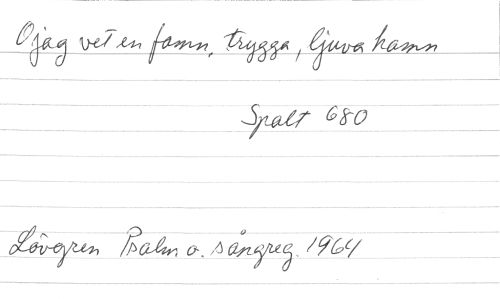 O jag vet en famn, trygga, ljuva hamn
Spalt 680
Lövgren Psalm o. sångreg. 1964